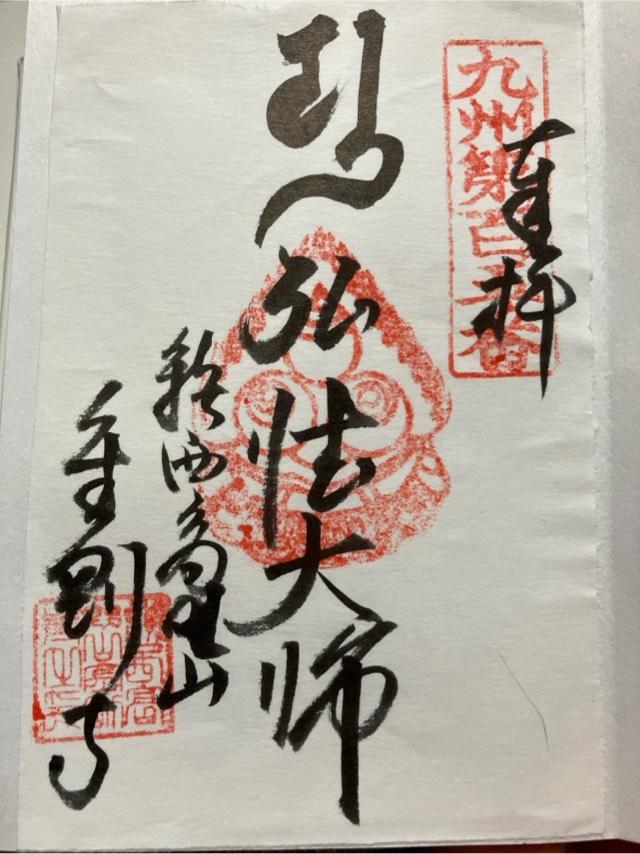 奉拝
九州第百番
弘法大師
鎮西高野山
金剛寺